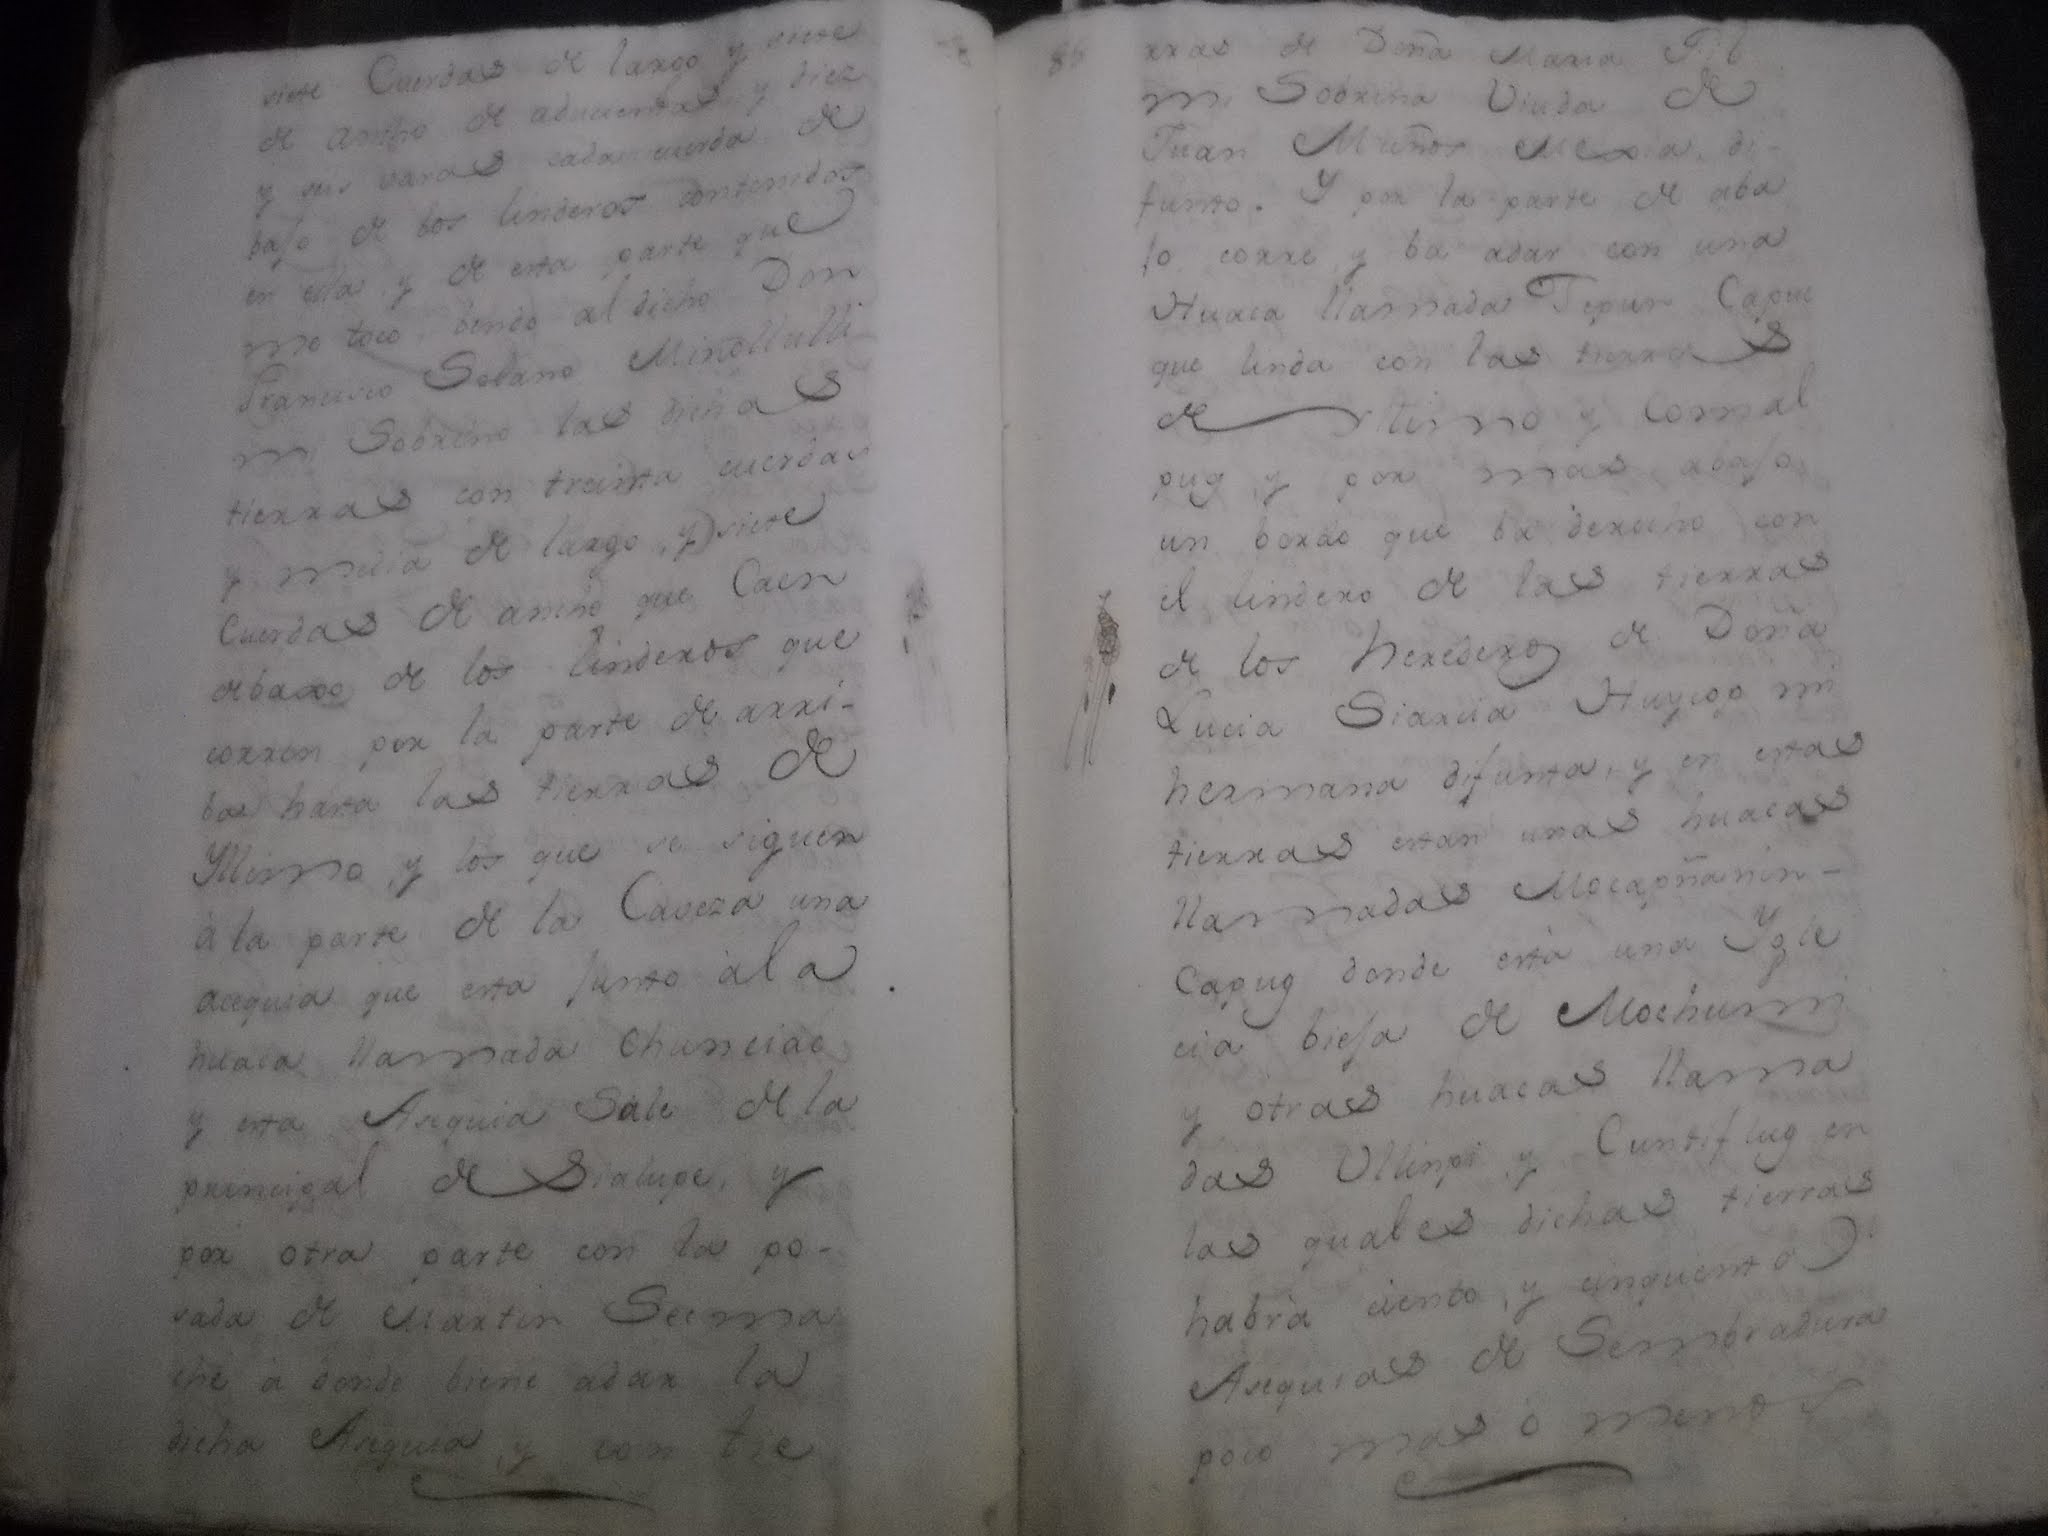 siete Cuerdas de largo y siete
de ancho de aducientas y diez
y seis varas cada cuerda de
bajo de los linderos contenidos
en ella y de esta parte que
me toco, bendo al dicho Don
Francisco Solano Miñollulli
mi Sobrino las dichas
tierras con treinta cuerdas
y media de largo, y siete
Cuerdas de ancho que Caen
debaxo de los linderos que
corren por la parte de arri-
ba hasta las tierras de
Yllimo y los que se siguen
á la parte de la Caveza una
acequia que esta junto àla
huaca llamada Chunciac
y esta Asequia Sale de la
principal de Sialupe, y
por otra parte con la po-
sada de Martin Seema
che à donde biene adar la
dicha Asequia, y con tie
86 rras de Doña Maria Fil
mi Sobrina Viuda de
Juan Muños Mexia, di-
funto. Y por la parte de aba
jo corre y ba adar con una
Huaca llamada Tepun Capuc
que linda con las tierras
de y Cornal
pug y por mas abajo
un bordo que ba derecho con
el lindero de las tierras
de los heredero de Doña
Lucia Siancia Huycop mi
hermana difunta, y en estas
tierras estan unas huacas
llamadas Mocapñanin-
Capug donde està una Ygle
cia bieja de Mochumi
y otras huacas llama
das Ullinpi y Cuntiflug en
las quales dichas tierras
habrà ciento, y cinquenta
Asequias de Sembradura
poco mas ò menos